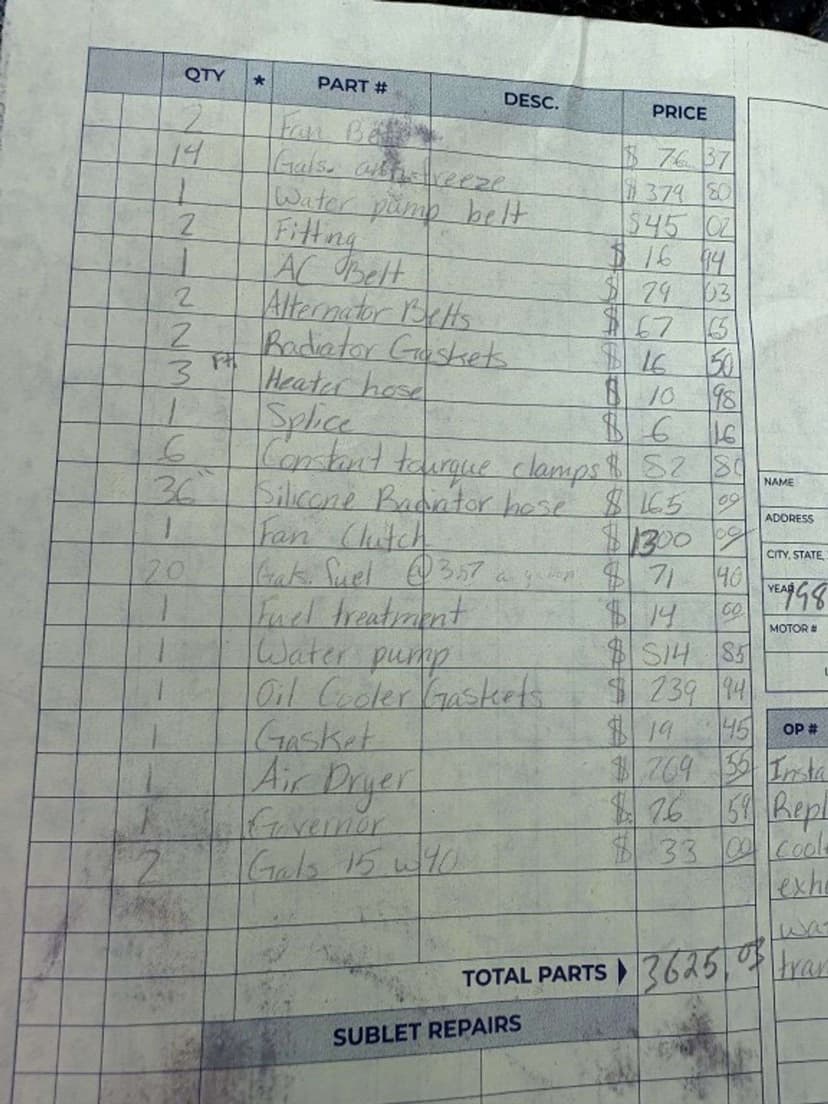 QTY * PART # DESC. PRICE
2 Fan Belts $ 76 37
14 Gals. antifreeze $ 379 80
1 Water pump belt $45 02
2 Fitting $ 16 94
1 AC Belt $ 29 03
2 Alternator Belts $ 67 65
2 Radiator Gaskets $ 16 50
3 Ft. Heater hose $ 10 98
1 Splice $ 6 16
6 Constant tourque clamps $ 82 80
36" Silicone Radiator hose $ 165 00
1 Fan Clutch $ 1300 00
20 Gals. fuel @ 3.57 a $ 71 40
1 Fuel treatment $ 14 00
1 Water pump $ 514 85
1 Oil Cooler Gaskets $ 239 94
1 Gasket $ 19 45
1 Air Dryer $ 269 55
1 Governor $ 26 59
2 Gals 15 w 40 $ 33 00
TOTAL PARTS 3625.03
SUBLET REPAIRS
NAME
ADDRESS
CITY, STATE,
YEAR 198
MOTOR #
OP #
Insta
Repl
cool
exh
wa
tran